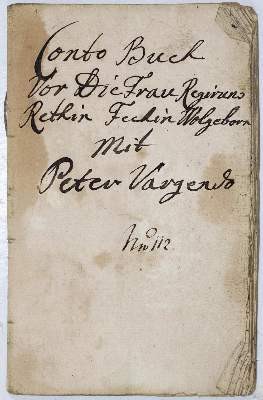 Conto Buch
Vor Die Frau Regirung
Rethin Feckin Wolgeborn
Mit
Peter Vargendo
No 112